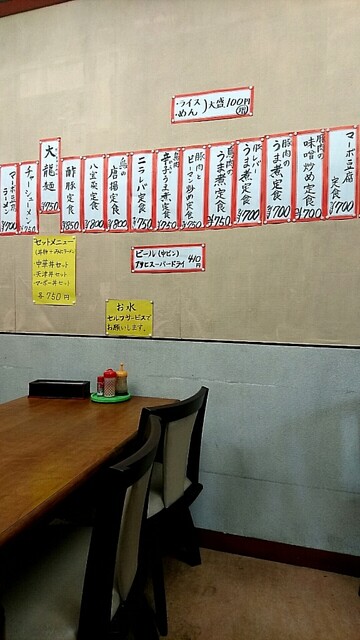 ・ライス
・めん ）大盛100円
マーボ豆腐
定食
¥700
豚肉の
味噌炒め定食
¥700
豚肉の
うま煮定食
¥700
豚レバー
うま煮定食
¥700
うま煮定食
¥750
豚肉と
ピーマン炒め定食
¥750
辛子うま煮定食
¥750
ニラレバ定食
¥750
鳥の
唐揚定食
¥800
八宝菜定食
¥800
酢豚定食
¥850
大龍麺
¥950
チャーシューメン
¥750
マーボ豆腐
ラーメン
¥700
セットメニュー
中華丼セット
天津丼セット
マーボー丼セット
各750円
ビール(中ビン)
アサヒスーパードライ
410円
お水
セルフサービスで
お願いします。